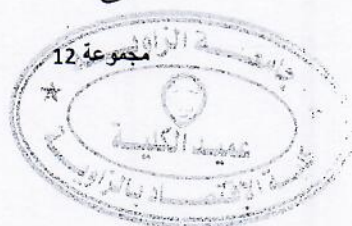 مجموعة 12
جامعة الزاوية
عميد الكلية
كلية الاقتصاد بالزاوية